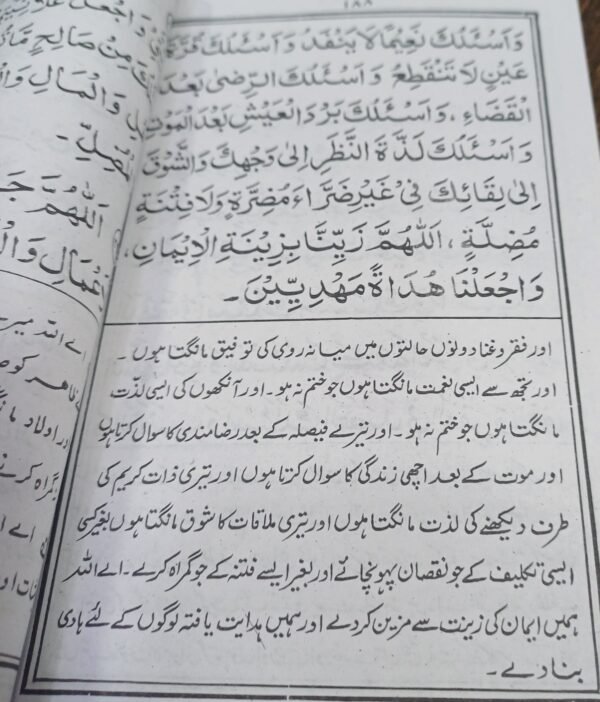 ۱۸۸
وَاَسْئَلُكَ نَعِيْمًا لَا يَنْفَدُ وَاَسْئَلُكَ قُرَّةَ
عَيْنٍ لَا تَنْقَطِعُ وَاَسْئَلُكَ الرِّضٰى بَعْدَ
الْقَضَاءِ ، وَاَسْئَلُكَ بَرْدَ الْعَيْشِ بَعْدَ الْمَوْتِ
وَاَسْئَلُكَ لَذَّةَ النَّظَرِ اِلٰى وَجْهِكَ وَالشَّوْقَ
اِلٰى لِقَائِكَ فِىْ غَيْرِ ضَرَّاءَ مُضِرَّةٍ وَلَا فِتْنَةٍ
مُضِلَّةٍ ، اَللّٰهُمَّ زَيِّنَّا بِزِيْنَةِ الْاِيْمَانِ،
وَاجْعَلْنَا هُدَاةً مَهْدِيِّيْنَ ۔
اور فقر و غنا دونوں حالتوں میں میانہ روی کی توفیق مانگتا ہوں ۔
اور تجھ سے ایسی نعمت مانگتا ہوں جو ختم نہ ہو ۔ اور آنکھوں کی ایسی لذّت
مانگتا ہوں جو ختم نہ ہو ۔ اور تیرے فیصلہ کے بعد رضامندی کا سوال کرتا ہوں
اور موت کے بعد اچھی زندگی کا سوال کرتا ہوں اور تیری ذات کریم کی
طرف دیکھنے کی لذت مانگتا ہوں اور تیری ملاقات کا شوق مانگتا ہوں بغیر کسی
ایسی تکلیف کے جو نقصان پہونچائے اور بغیر ایسے فتنہ کے جو گمراہ کرے ۔ اے اللہ
ہمیں ایمان کی زینت سے مزین کردے اور ہمیں ہدایت یافتہ لوگوں کے لئے ہادی
بنا دے ۔